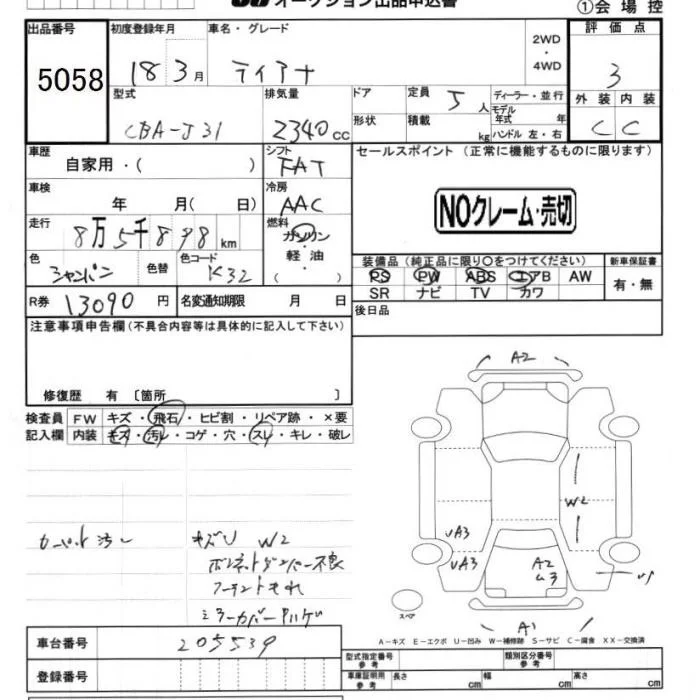 オークション出品申込書
①会場控
出品番号 初度登録年月 車名・グレード 評価点
5058 18 3月 ティアナ 2WD ・ 4WD 3
型式 排気量 ドア 定員 5人 ディーラー・並行 外装 内装
モデル年式 年
CBA-J31 2340cc 形状 積載 kg ハンドル 左・右 C C
車歴 自家用・( ) シフト FAT セールスポイント (正常に機能するものに限ります)
車検 年 月( 日) 冷房 AAC NOクレーム・売切
走行 8万5千898km 燃料 ガソリン
軽油
( )
色 シャンパン 色替 色コード K32 装備品(純正品に限り○をつけてください) 新車保証書
PS PW ABS エアB AW 有・無
SR ナビ TV カワ
R券 13090円 名変通知期限 月 日 後日品
注意事項申告欄(不具合内容等は具体的に記入して下さい)
修復歴 有 〔箇所 〕
検査員 FW キズ・飛石・ヒビ割・リペア跡・×要
記入欄 内装 キズ・汚レ・コゲ・穴・スレ・キレ・破レ
A2
W2
UA3
UA3
A2
A1
スペア
カーペット汚レ キズU W2
ボンネットダンパー不良
ミラーカバーハゲ
A-キズ E-エクボ U-凹み W-補修跡 S-サビ C-腐食 XX-交換済
車台番号 205539
登録番号
型式指定番号 参考 類別区分番号 参考
車庫証明用 参考 長さ cm 幅 cm 高さ cm